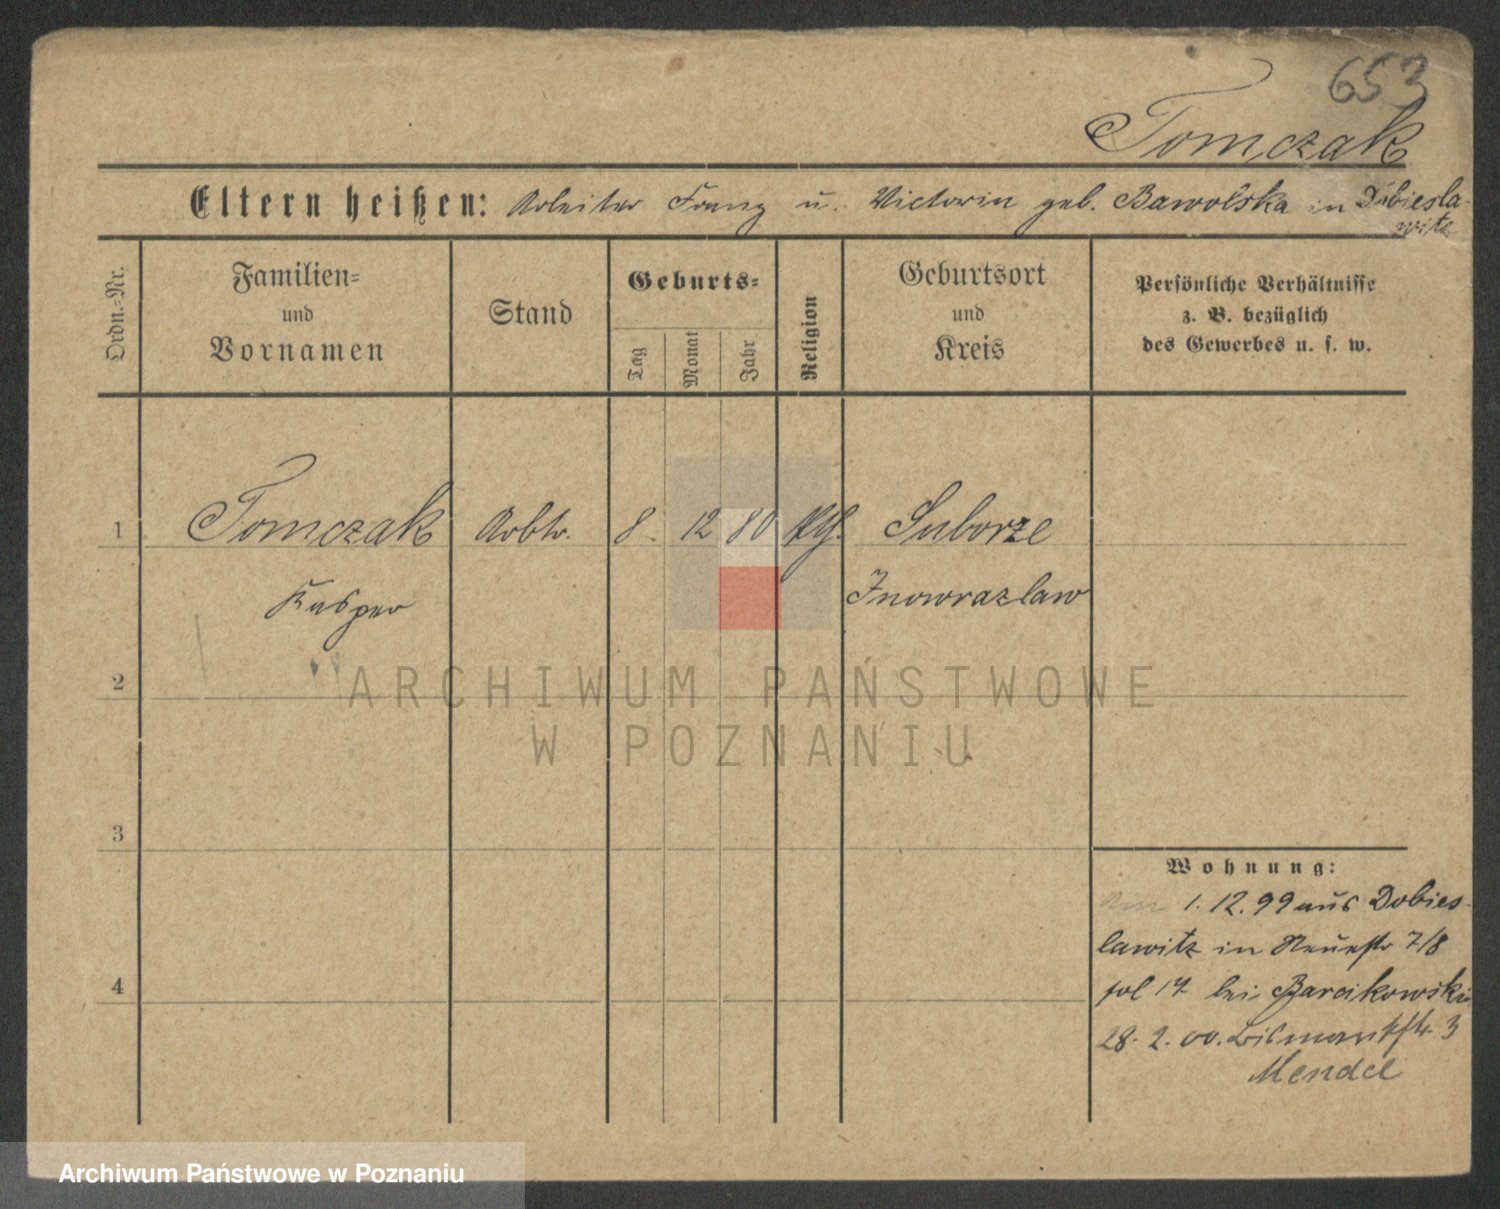 653
Tomczak
Eltern heißen: Arbeiter Franz u. Victoria geb. Bawolska in Dobiesla-
witz
Ordn.-Nr.
Familien-
und
Vornamen
Stand
Geburts-
Tag
Monat
Jahr
Religion
Geburtsort
und
Kreis
Persönliche Verhältnisse
z. B. bezüglich
des Gewerbes u. s. w.
1 Tomczak Arbtr. 8. 12 80 kth. Suborze
Kasper Inowrazlaw
2
ARCHIWUM PAŃSTWOWE
W POZNANIU
3
Wohnung:
Am 1. 12. 99 aus Dobies-
lawitz in Neuestr 7/8
fol 17 bei Barcikowski
4
28. 2. 00. Bismarckstr. 3
Mendel
Archiwum Państwowe w Poznaniu